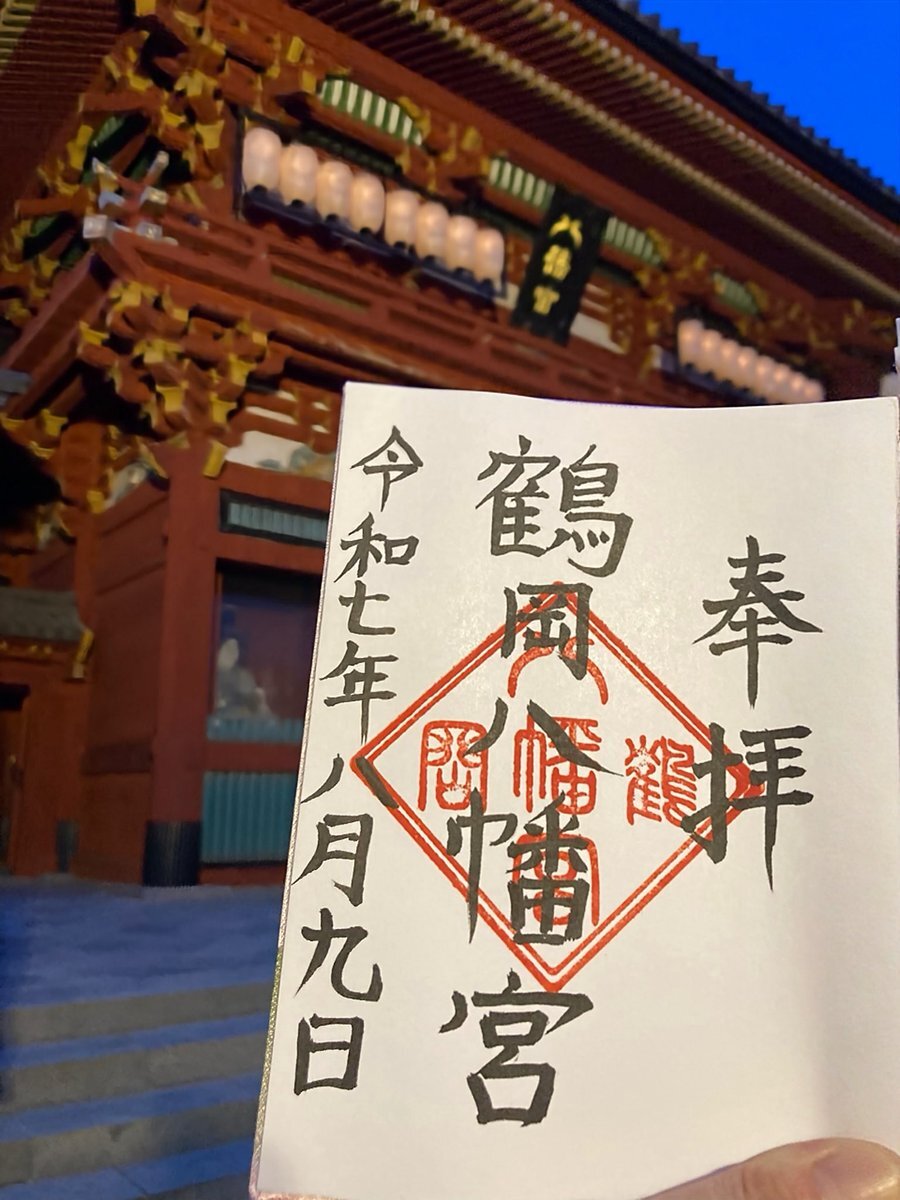 八幡宮
奉拝
鶴岡八幡宮
令和七年八月九日
鶴
八幡宮
岡